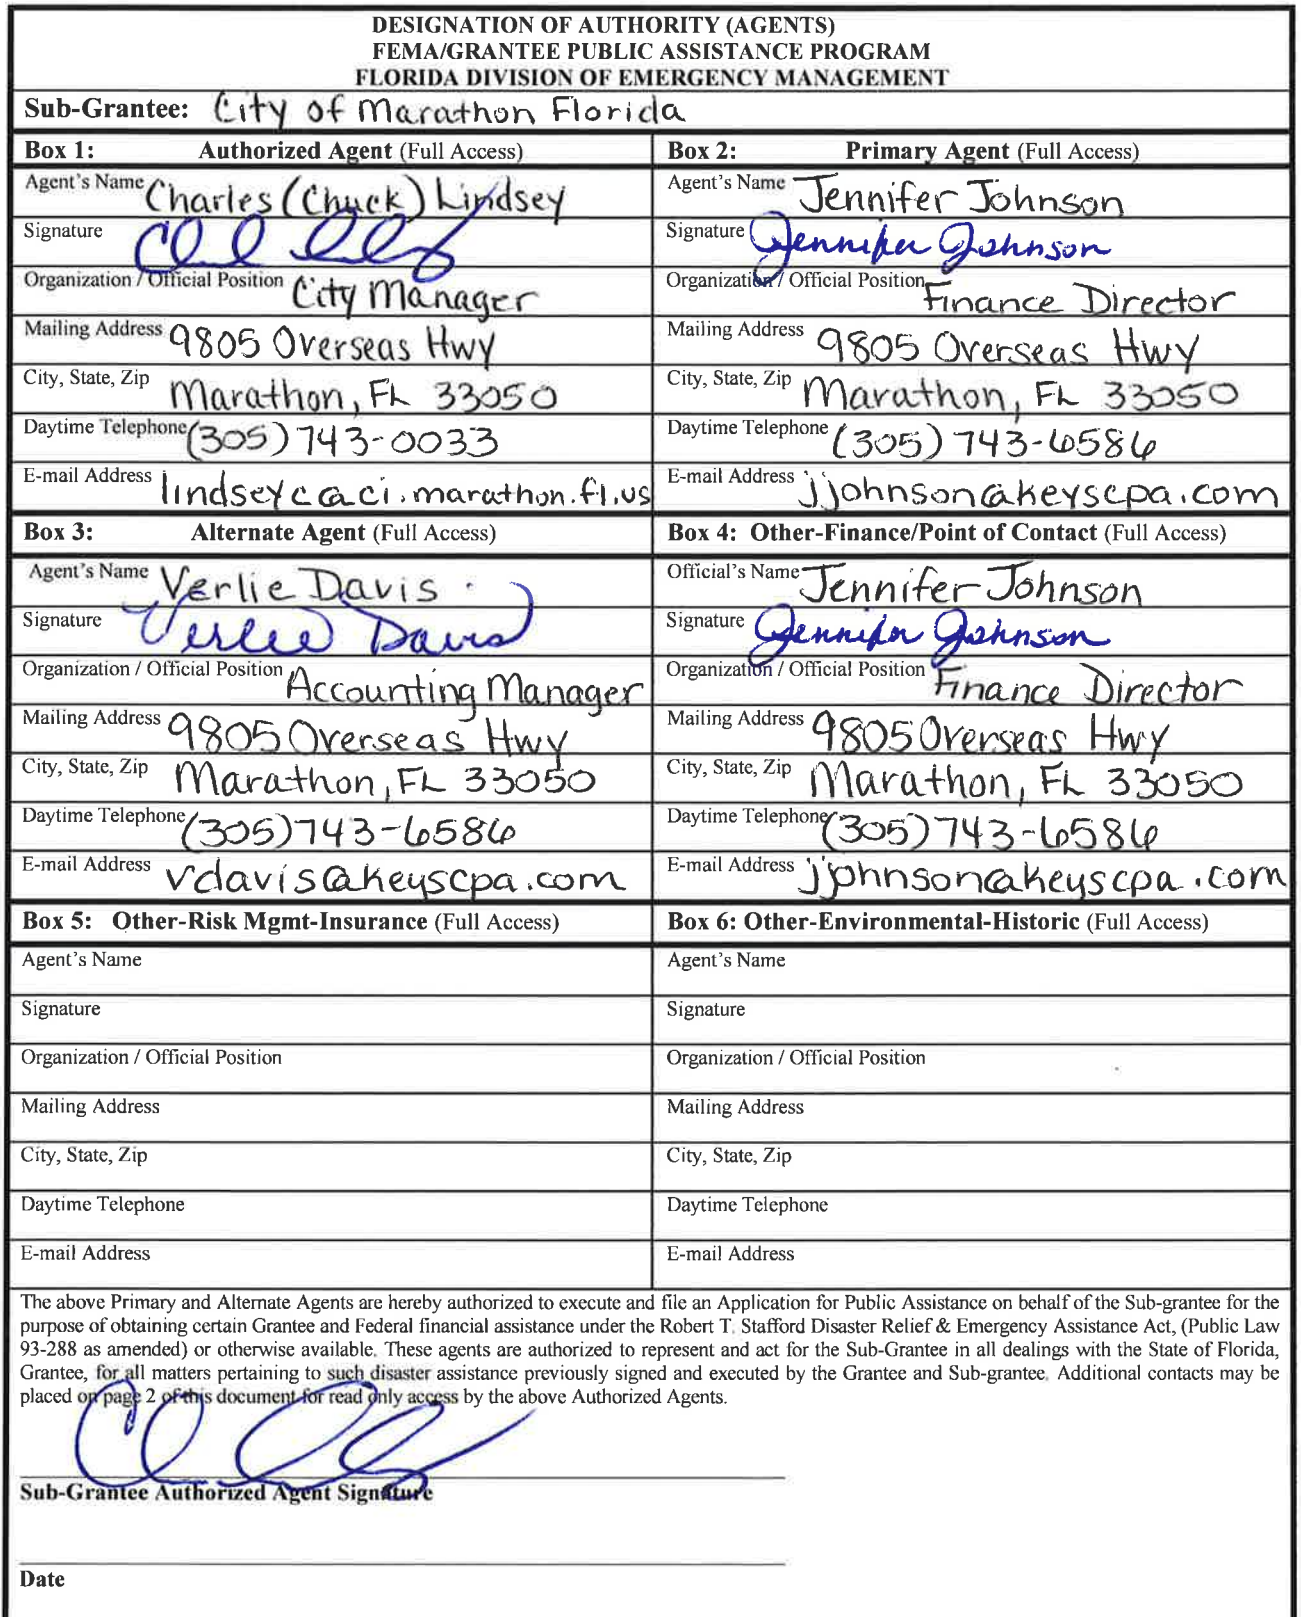 DESIGNATION OF AUTHORITY (AGENTS)
FEMA/GRANTEE PUBLIC ASSISTANCE PROGRAM
FLORIDA DIVISION OF EMERGENCY MANAGEMENT
Sub-Grantee: City of Marathon Florida
Box 1: Authorized Agent (Full Access)
Agent's Name Charles (Chuck) Lindsey
Signature
Organization / Official Position City Manager
Mailing Address 9805 Overseas Hwy
City, State, Zip Marathon, FL 33050
Daytime Telephone (305) 743-0033
E-mail Address lindseyc@ci.marathon.fl.us
Box 2: Primary Agent (Full Access)
Agent's Name Jennifer Johnson
Signature Jennifer Johnson
Organization / Official Position Finance Director
Mailing Address 9805 Overseas Hwy
City, State, Zip Marathon, FL 33050
Daytime Telephone (305) 743-6586
E-mail Address jjohnson@keyscpa.com
Box 3: Alternate Agent (Full Access)
Agent's Name Verlie Davis
Signature Verlie Davis
Organization / Official Position Accounting Manager
Mailing Address 9805 Overseas Hwy
City, State, Zip Marathon, FL 33050
Daytime Telephone (305) 743-6586
E-mail Address vdavis@keyscpa.com
Box 4: Other-Finance/Point of Contact (Full Access)
Official's Name Jennifer Johnson
Signature Jennifer Johnson
Organization / Official Position Finance Director
Mailing Address 9805 Overseas Hwy
City, State, Zip Marathon, FL 33050
Daytime Telephone (305) 743-6586
E-mail Address jjohnson@keyscpa.com
Box 5: Other-Risk Mgmt-Insurance (Full Access)
Agent's Name
Signature
Organization / Official Position
Mailing Address
City, State, Zip
Daytime Telephone
E-mail Address
Box 6: Other-Environmental-Historic (Full Access)
Agent's Name
Signature
Organization / Official Position
Mailing Address
City, State, Zip
Daytime Telephone
E-mail Address
The above Primary and Alternate Agents are hereby authorized to execute and file an Application for Public Assistance on behalf of the Sub-grantee for the
purpose of obtaining certain Grantee and Federal financial assistance under the Robert T. Stafford Disaster Relief & Emergency Assistance Act, (Public Law
93-288 as amended) or otherwise available. These agents are authorized to represent and act for the Sub-Grantee in all dealings with the State of Florida,
Grantee, for all matters pertaining to such disaster assistance previously signed and executed by the Grantee and Sub-grantee. Additional contacts may be
placed on page 2 of this document for read only access by the above Authorized Agents.
Sub-Grantee Authorized Agent Signature
Date